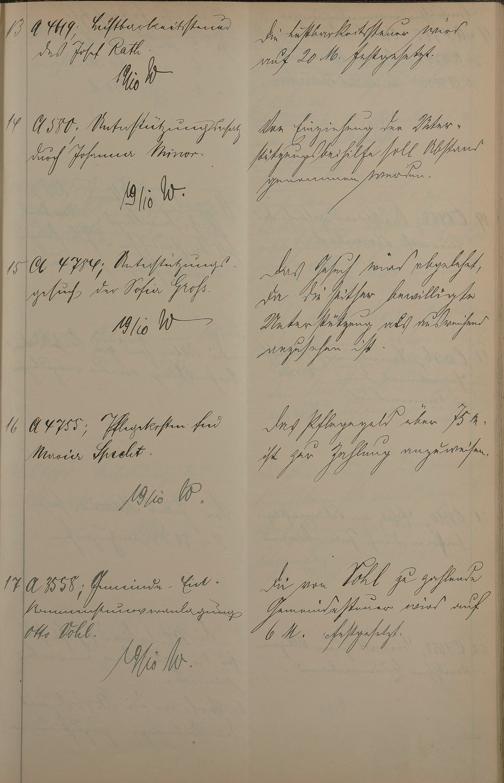 13 A 4619; Lustbarkeitssteuer
des Josef Rath.
19/10 W
Die Lustbarkeitssteuer wird
auf 20 M. festgesetzt.
14 A 580; Unterstützungsersatz
durch Johanna Minor.
19/10 W.
Von Einziehung der Unter-
stützungsbeihilfe soll Abstand
genommen werden.
15 A 4784; Unterstützungs-
gesuch der Sofia Groß.
19/10 W
Das Gesuch wird abgelehnt,
da die seither bewilligte
Unterstützung als ausreichend
anzusehen ist.
16 A 4755; Pflegekosten für
Maria Specht.
19/10 W.
Das Pflegegeld über 75 M.
ist zur Zahlung anzuweisen.
17 A 3558; Gemeinde-Ein-
kommensteuerveranlagung
Otto Vohl.
19/10 W.
Die von Vohl zu zahlende
Gemeindesteuer wird auf
6 M. festgesetzt.